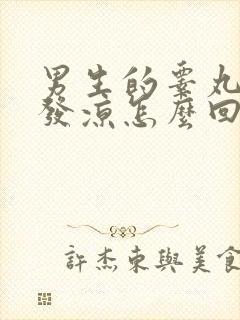 男生的睪丸
發涼怎麼回
許杰東與美食